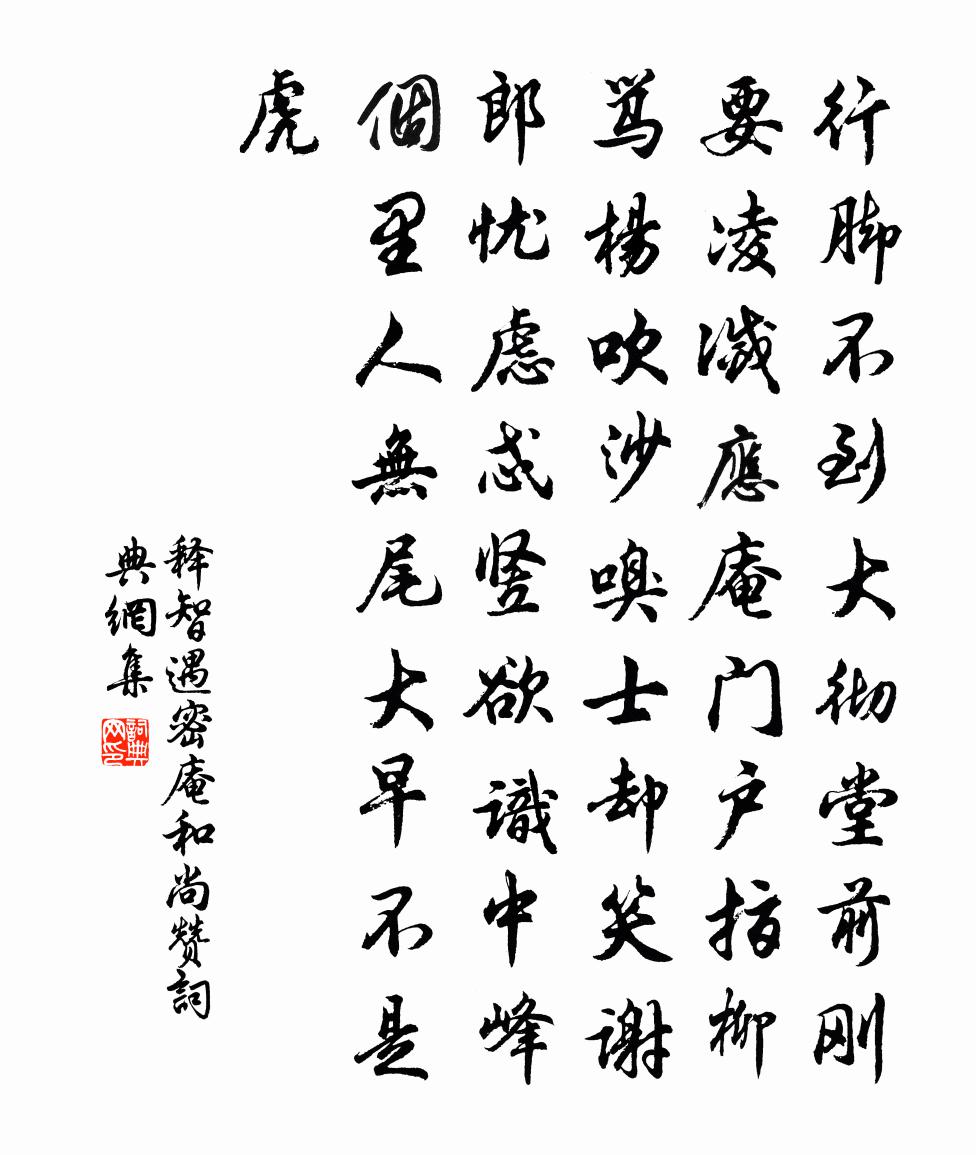 行脚不到大彻堂前刚
要凌灭應庵门户指柳
骂楊吹沙嗅士却笑谢
郎忧虑忒竖欲識中峰
個里人無尾大早不是
虎
释智遇密庵和尚赞詞
典網集
詞典网印